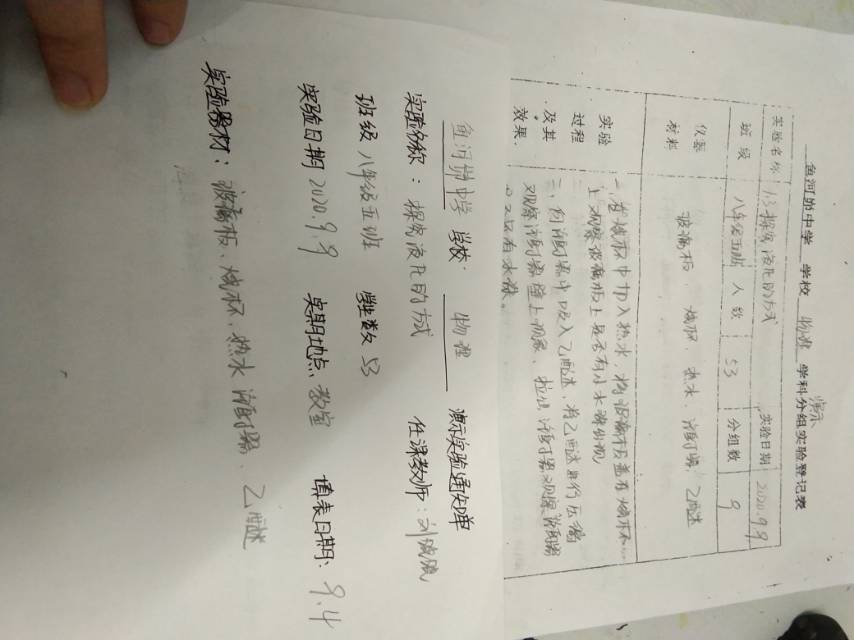 鱼河峁中学 学校 物理 学科分组实验登记表
演示
实验名称 1.3探究液化的方式 实验日期 2020.9.9
班级 八年级五班 人数 53 分组数 9
仪器材料 玻璃板、烧杯、热水、注射器、乙醚
实验过程及其效果
一、在烧杯中加入热水,将玻璃板盖在烧杯
上观察玻璃板上是否有小水珠出现
二、向注射器中吸入乙醚,将乙醚进行压缩
观察注射器壁上现象、拉出注射器观察
水珠。
鱼河峁中学 学校 物理 演示实验通知单
实验名称:探究液化的方式 任课教师:刘
班级 八年级五班 学生数 53
实验日期 2020.9.9 实验地点 教室 填表日期:9.4
实验器材:玻璃板、烧杯、热水 注射器、乙醚